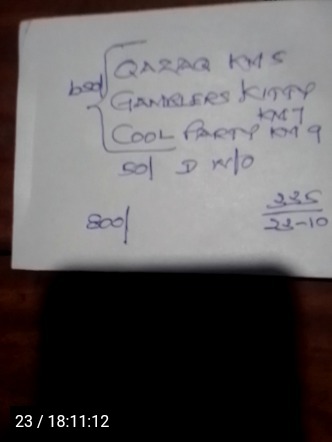 QAZAQ KM 5
bsd
GAMBLERS KITTY
KM 7
COOL PARTY KM 9
50/ D W/O
800/
335
23-10
23 / 18:11:12